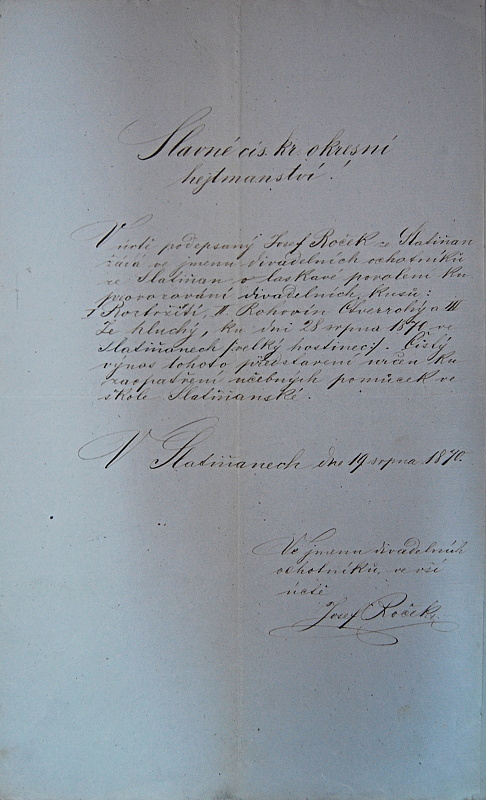 Slavné cís. kr. okresní
hejtmanství!
V úctě podepsaný Josef Roček ze Slatiňan
žádá ve jmenu divadelních ochotníků
ze Slatiňan o laskavé povolení ku
provozování divadelních kusů:
I Roztržití, II Rohovín Čtverrohý a III
Je hluchý, ku dni 28 srpna 1870 ve
Slatiňanech velký hostinec. Čistý
výnos tohoto představení určen ku
zaopatření učebných pomůcek ve
škole Slatiňanské.
V Slatiňanech dne 19 srpna 1870.
Ve jmenu divadelních
ochotníků ve vší
úctě
Josef Roček